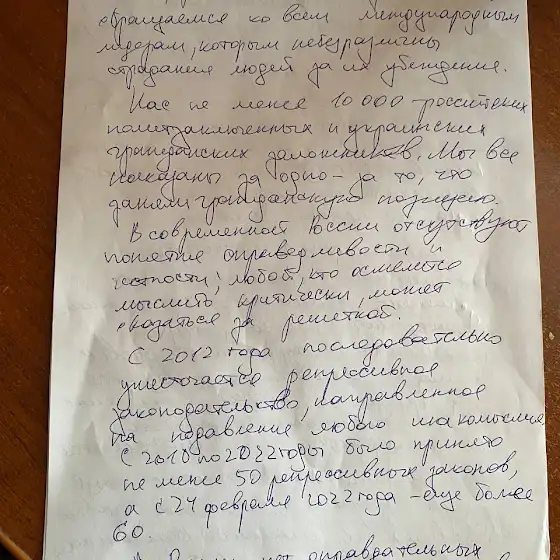 обращаемся ко всем международным
лидерам, которым небезразличны
страдания людей за их убеждения.
Нас не менее 10 000 - российских
политзаключенных и украинских
гражданских заложников. Мы все
наказаны за одно - за то, что
заняли гражданскую позицию.
В современной России отсутствуют
понятие справедливости и
честности; любой, кто осмелится
мыслить критически, может
оказаться за решеткой.
С 2012 года последовательно
ужесточается репрессивное
законодательство, направленное
на подавление любого инакомыслия
С 2018 по 2022 годы было принято
не менее 50 репрессивных законов,
а с 24 февраля 2022 года - еще более
60.
оправдательных